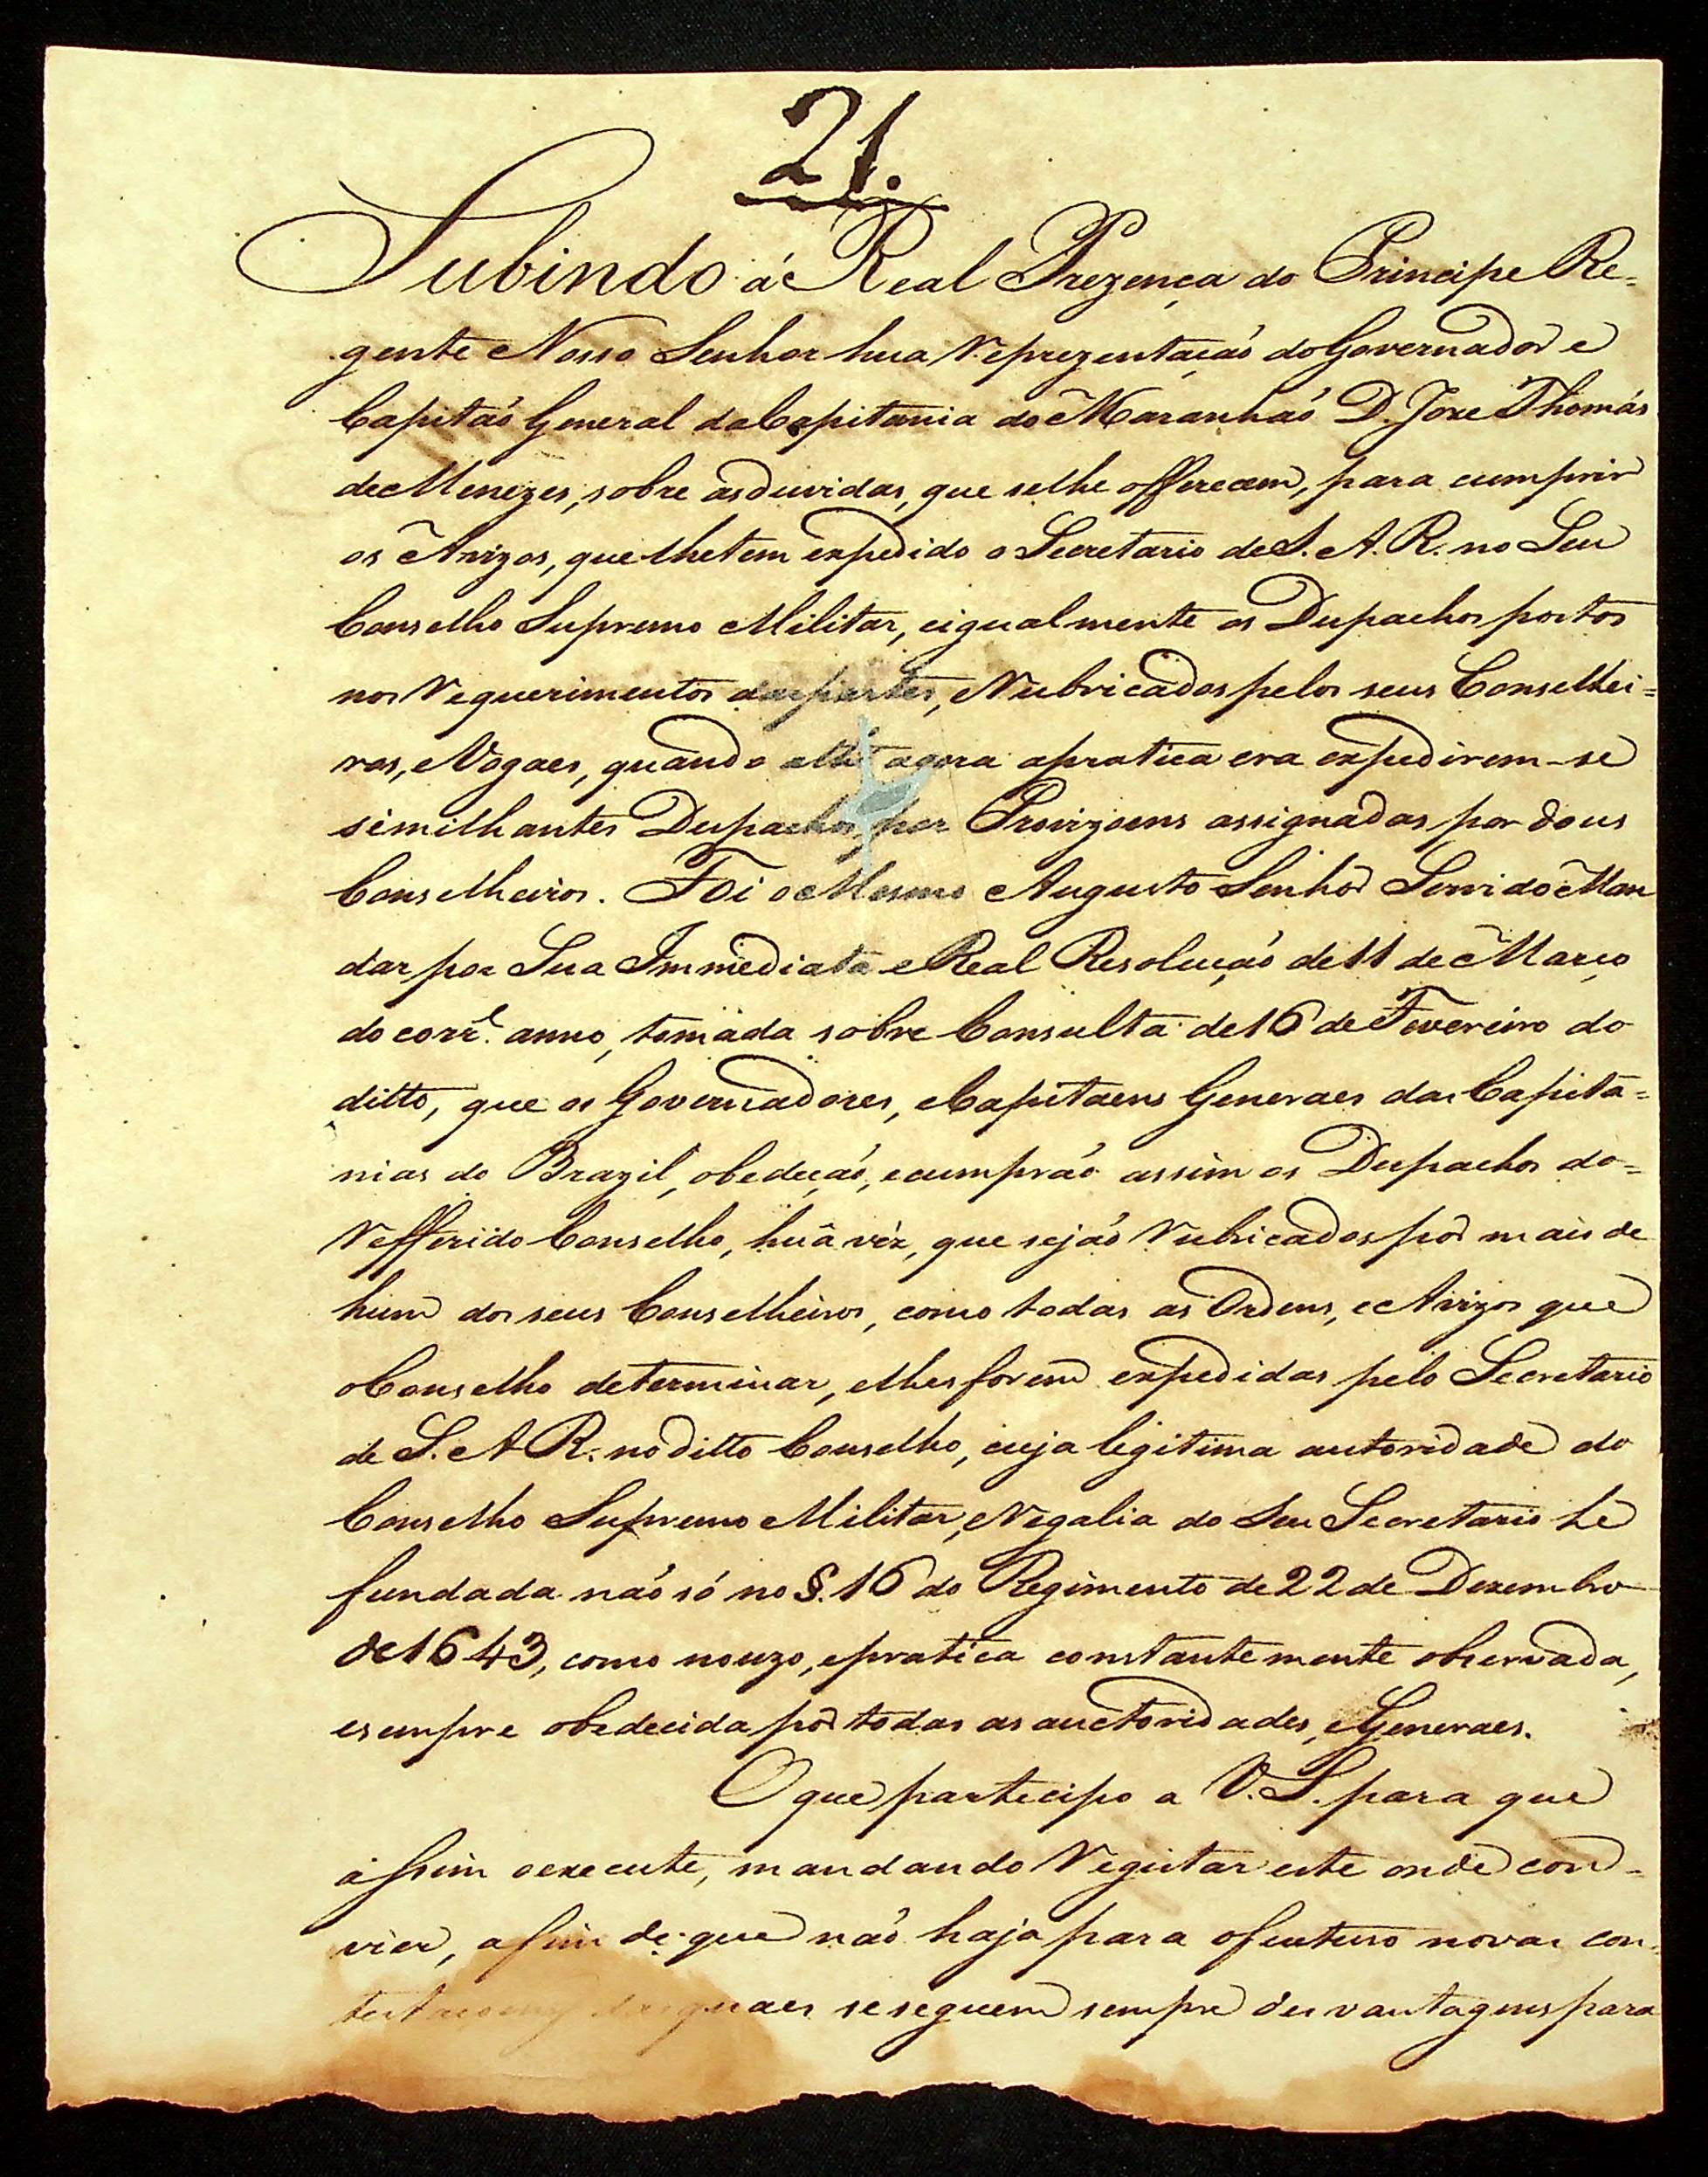 21.
Subindo á Real Prezença do Principe Re-
gente Nosso Senhor hua Reprezentaçaõ do Governador e
Capitaõ General da Capitania do Maranhaõ D. Joze Thomás
de Menezes, sobre as duvidas, que se lhe offerecem, para cumprir
os Avizos, que lhe tem expedido o Secretario de S. A. R. no Seu
Conselho Supremo Militar, e igualmente os Despachos postos
nos Requerimentos das partes, e Rubricados pelos seus Conselhei=
ros, e Vogaes, quando athé agora a pratica era expedirem-se
similhantes Despachos por Provizoens assignadas por dous
Conselheiros. Foi o Mesmo Augusto Senhor Servido Man
dar por Sua Immediata e Real Resoluçaõ de 11 de Março
do corr.e anno, tomada sobre Consulta de 16 de Fevereiro do
ditto, que os Governadores, e Capitaens Generaes das Capita=
nias do Brazil, obedeçaõ, e cumpraõ assim os Despachos do=
Refferido Conselho, huã vez, que sejaõ Rubricados por mais de
hum dos seus Conselheiros, como todas as Ordens, e Avizos que
o Conselho determinar, e lhes forem expedidas pelo Secretario
de S. A. R. no ditto Conselho, cuja legitima autoridade do
Conselho Supremo Militar, e Regalia do Seu Secretario hé
fundada naõ só no §. 16 do Regimento de 22 de Dezembro
de 1643, como no uzo, e pratica constantemente observada,
e sempre obedecida por todas as auctoridades, e Generaes.
O que participo a V. S. para que
assim o execute, mandando Registar este onde con=
vier, a fim de que naõ haja para o futuro novas con-
quaes se seguem sempre desvantagens para